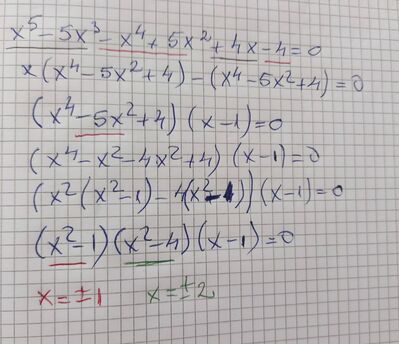 x⁵ - 5x³ - x⁴ + 5x² + 4x - 4 = 0
x(x⁴ - 5x² + 4) - (x⁴ - 5x² + 4) = 0
(x⁴ - 5x² + 4) (x - 1) = 0
(x⁴ - x² - 4x² + 4) (x - 1) = 0
(x²(x² - 1) - 4(x² - 1)) (x - 1) = 0
(x² - 1) (x² - 4) (x - 1) = 0
x = ±1 x = ±2